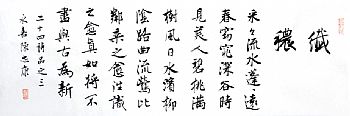 纖
穠
采々流水蓬々遠
春窈窕深谷時
見美人碧桃滿
樹風日水濱柳
陰路曲流鶯比
鄰乘之愈往識
之愈真如將不
盡與古為新
二十四詩品之三
永嘉陳忠康